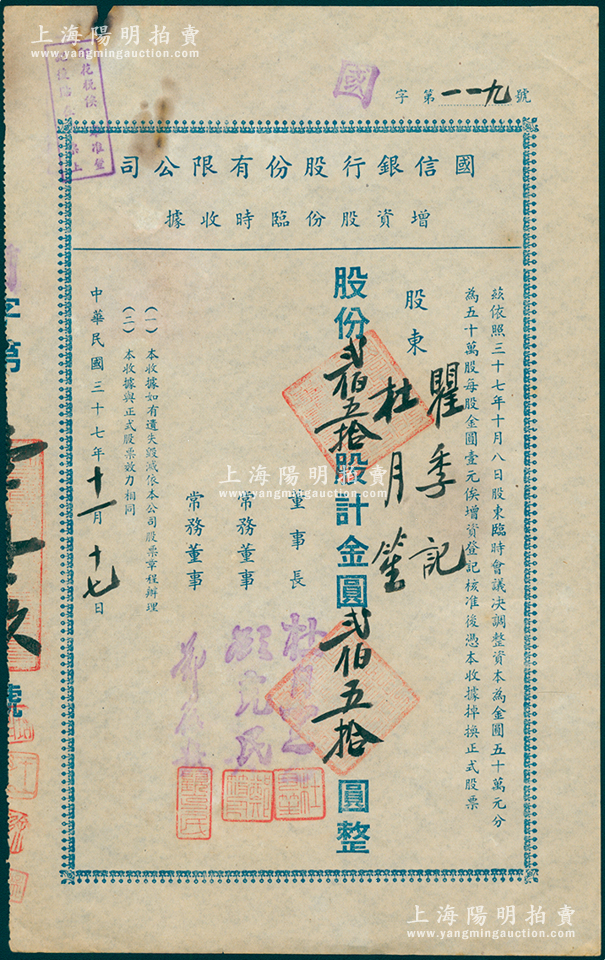 上海陽明拍賣
www.yangmingauction.com
國
字第一一九號
國信銀行股份有限公司
增資股份臨時收據
茲依照三十七年十月八日股東臨時會議決調整資本為金圓五十萬元分
為五十萬股每股金圓壹元俟增資登記核准後憑本收據掉換正式股票
瞿季記
股東 杜月笙
股份貳佰五拾股計金圓貳佰五拾圓整
董事長 杜月笙
常務董事
常務董事
(一)本收據如有遺失毀滅依本公司股票章程辦理
(二)本收據與正式股票效力相同
中華民國三十七年十一月十七日
字第
號
上海陽明拍賣
www.yangmingauction.com
上海陽明拍賣
www.yangmingauction.com